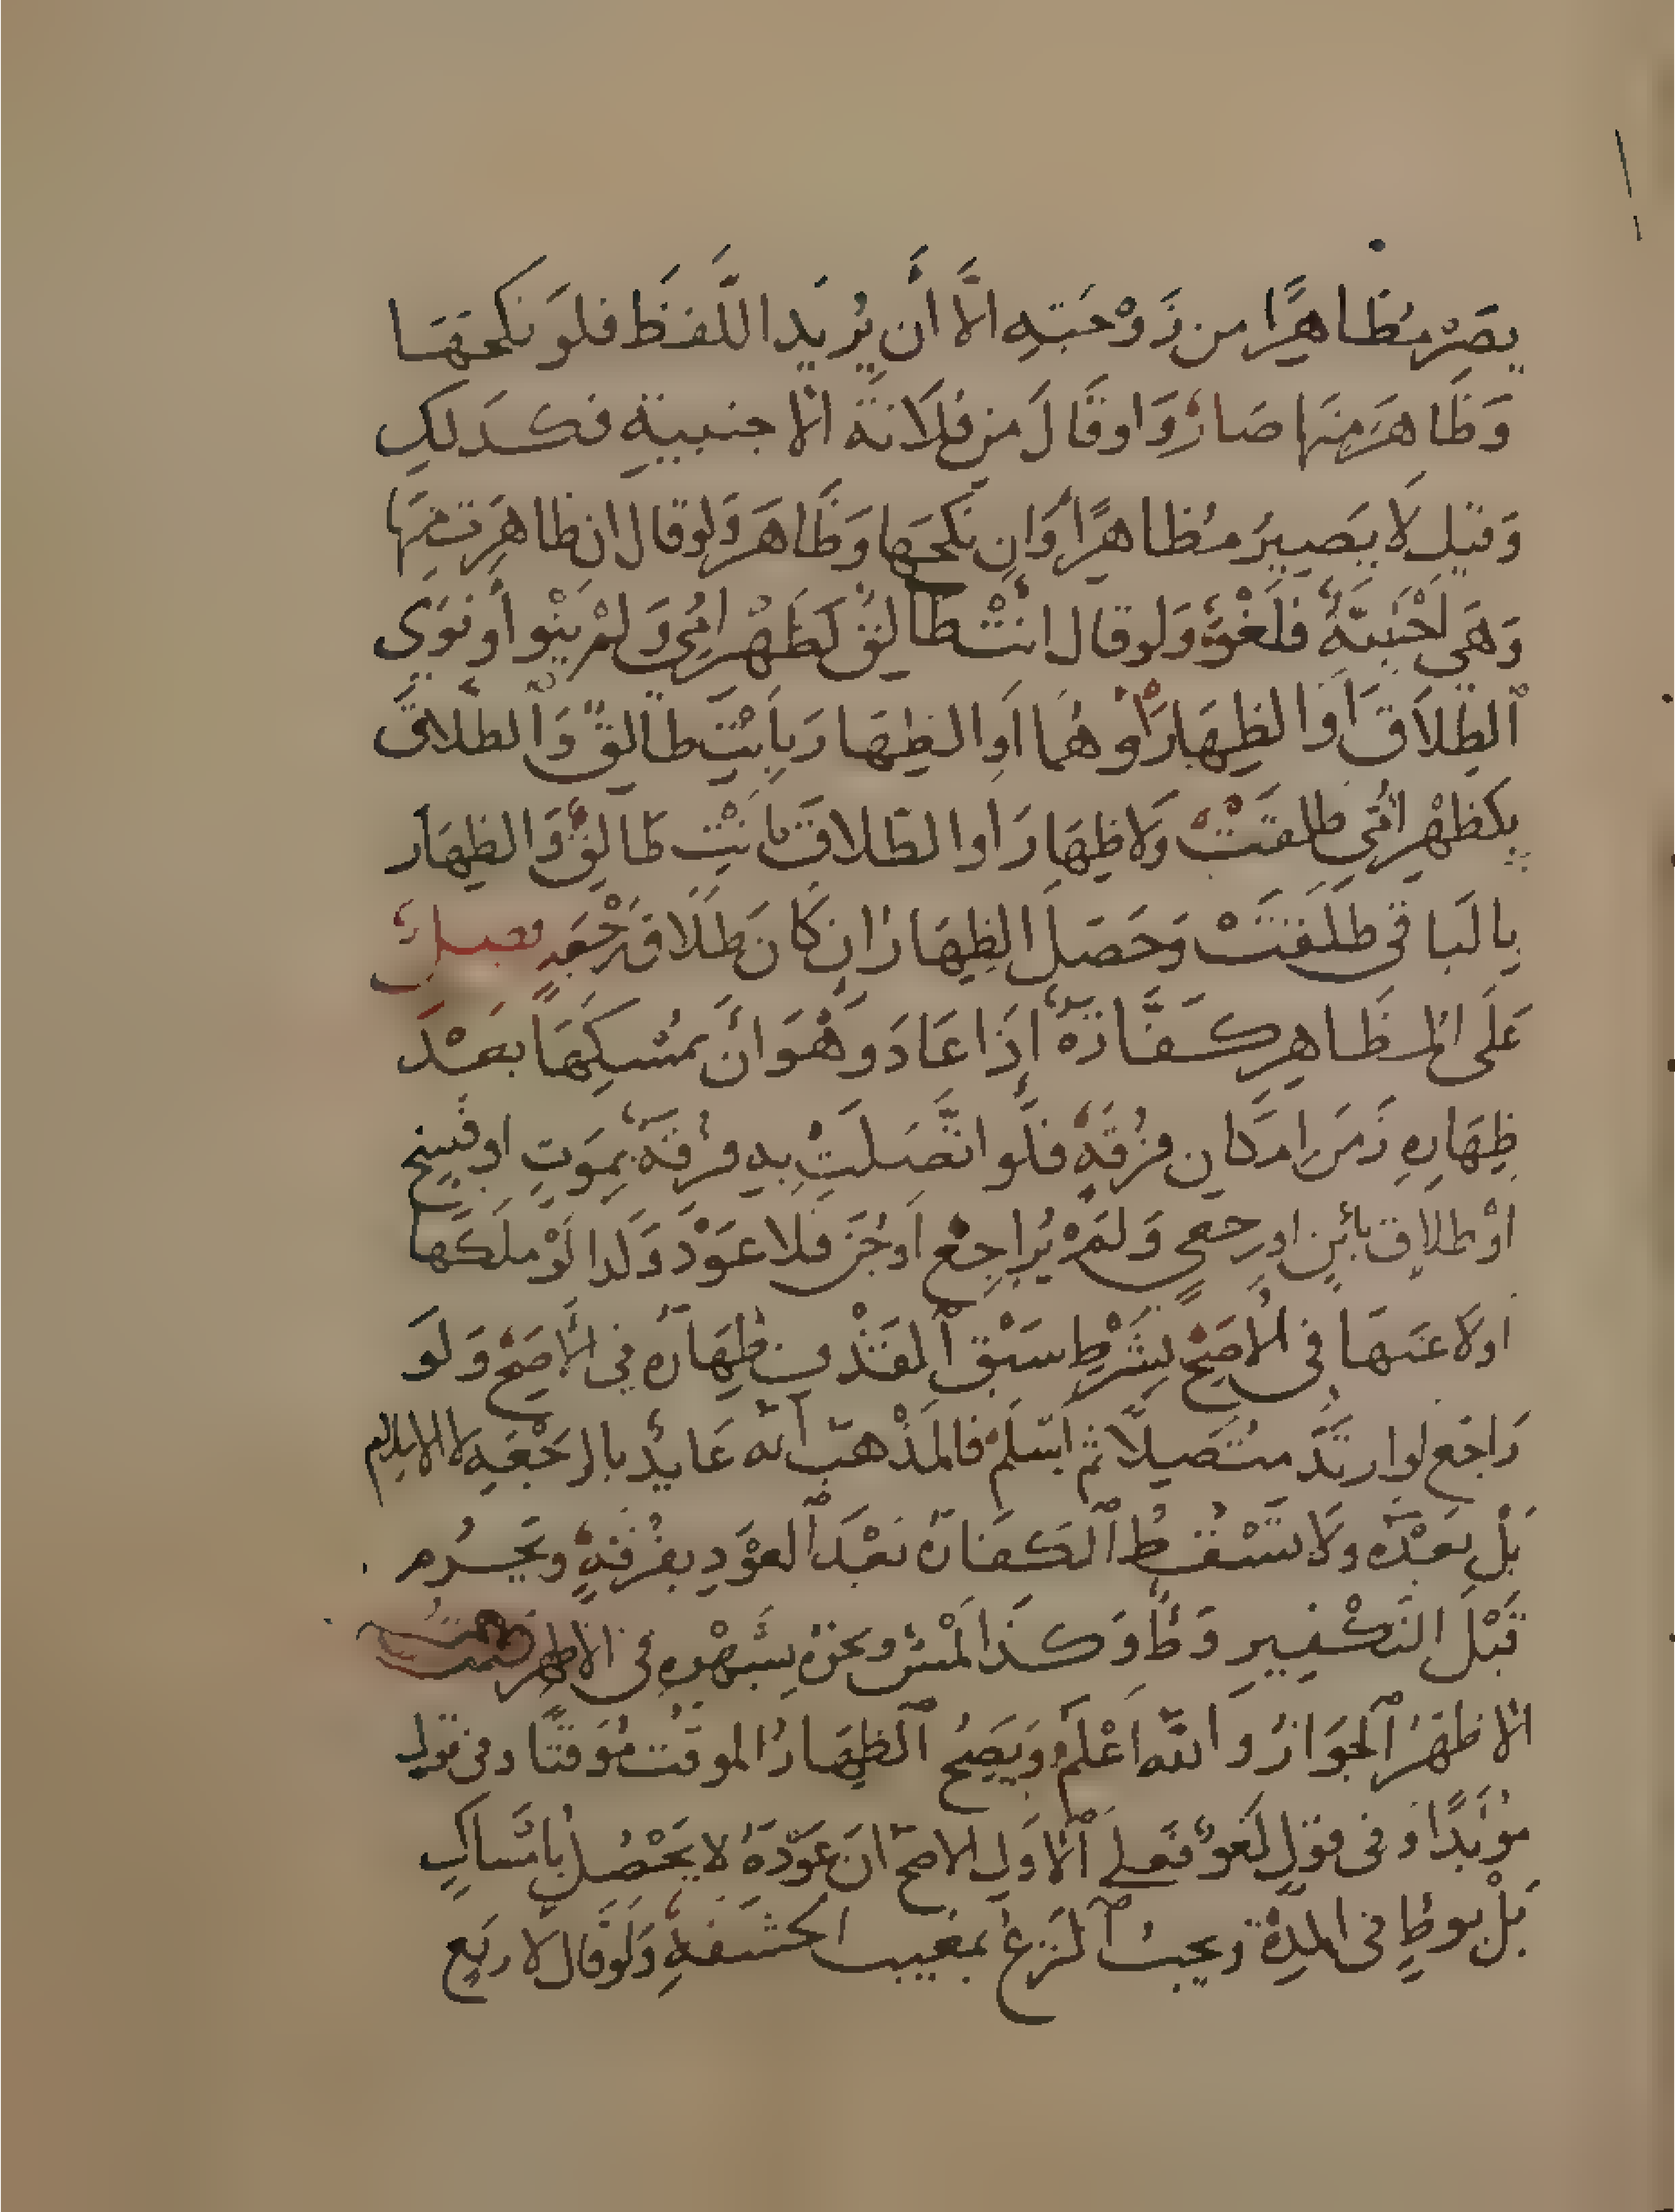 يصر مظاهرا من زوجته الا أن يريد اللفظ فلو نكحها
وظاهر منها صار ولو قال من فلانة الاجنبية فكذلك
وقيل لا يصير مظاهرا وان نكحها وظاهر ولو قال ان ظاهرت منها
وهي اجنبية فلغو ولو قال انت طالق كظهر امي ولم ينو أو نوى
الطلاق أو الظهار أو هما أو الظهار بأنت طالق والطلاق
بكظهر امي طلقت ولا ظهار او الطلاق بانت طالق والظهار
بالباقي طلقت وحصل الظهار ان كان طلاق رجعة فصل
على المظاهر كفارة إذا عاد وهو ان يمسكها بعد
ظهاره زمن امكان فرقة فلو اتصلت به فرقة بموت او فسخ
او طلاق بائن او رجعي ولم يراجع او جن فلا عود وكذا لو ملكها
او لاعنها في الاصح بشرط سبق القذف ظهاره في الأصح ولو
راجع او ارتد متصلا ثم اسلم فالمذهب انه عائد بالرجعة لا الاسلام
بل بعده ولا تسقط الكفارة بعد العود بفرقة ويحرم
قبل التكفير وطء وكذا لمس ونحوه بشهوة في الاظهر قلت
الاظهر الجواز والله اعلم ويصح الظهار الموقت موقتا وفي قول
مؤبدا وفي قول لغو فعلى الاول الاصح ان عوده لا يحصل بامساك
بل بوطء في المدة ويجب النزع بمغيب الحشفة ولو قال لاربع